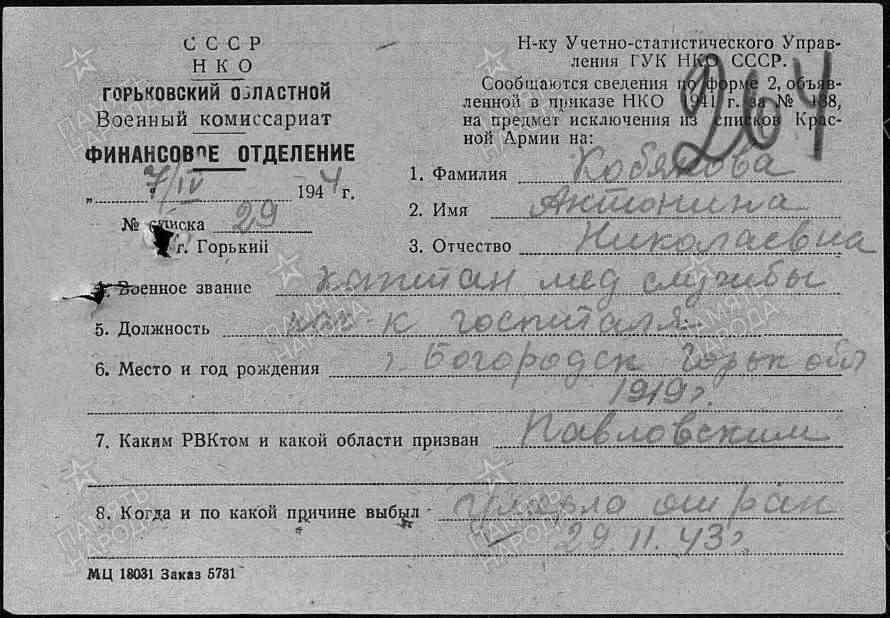 СССР
НКО
ГОРЬКОВСКИЙ ОБЛАСТНОЙ
Военный комиссариат
ФИНАНСОВОЕ ОТДЕЛЕНИЕ
„ 7/IV 1944 г.
№ списка 29
г. Горький
Н-ку Учетно-статистического Управ-
ления ГУК НКО СССР.
Сообщаются сведения по форме 2, объяв-
ленной в приказе НКО 1941 г. за № 138,
на предмет исключения из списков Крас-
ной Армии на:
264
1. Фамилия Кобякова
2. Имя Антонина
3. Отчество Николаевна
4. Военное звание капитан мед службы
5. Должность нач-к госпиталя
6. Место и год рождения г. Богородск Горьк обл
1919 г.
7. Каким РВКтом и какой области призван Павловским
8. Когда и по какой причине выбыл умерла от ран
29.11.43 г.
МЦ 18031 Заказ 5731
ПАМЯТЬ НАРОДА